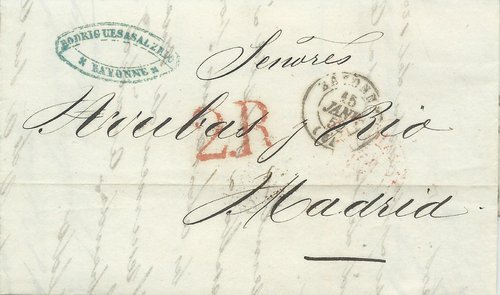 RODRIGUES & SALZEDO
* BAYONNE *
Señores
BAYONNE
15
JANV.
2R
Arribas y Rio
Madrid.